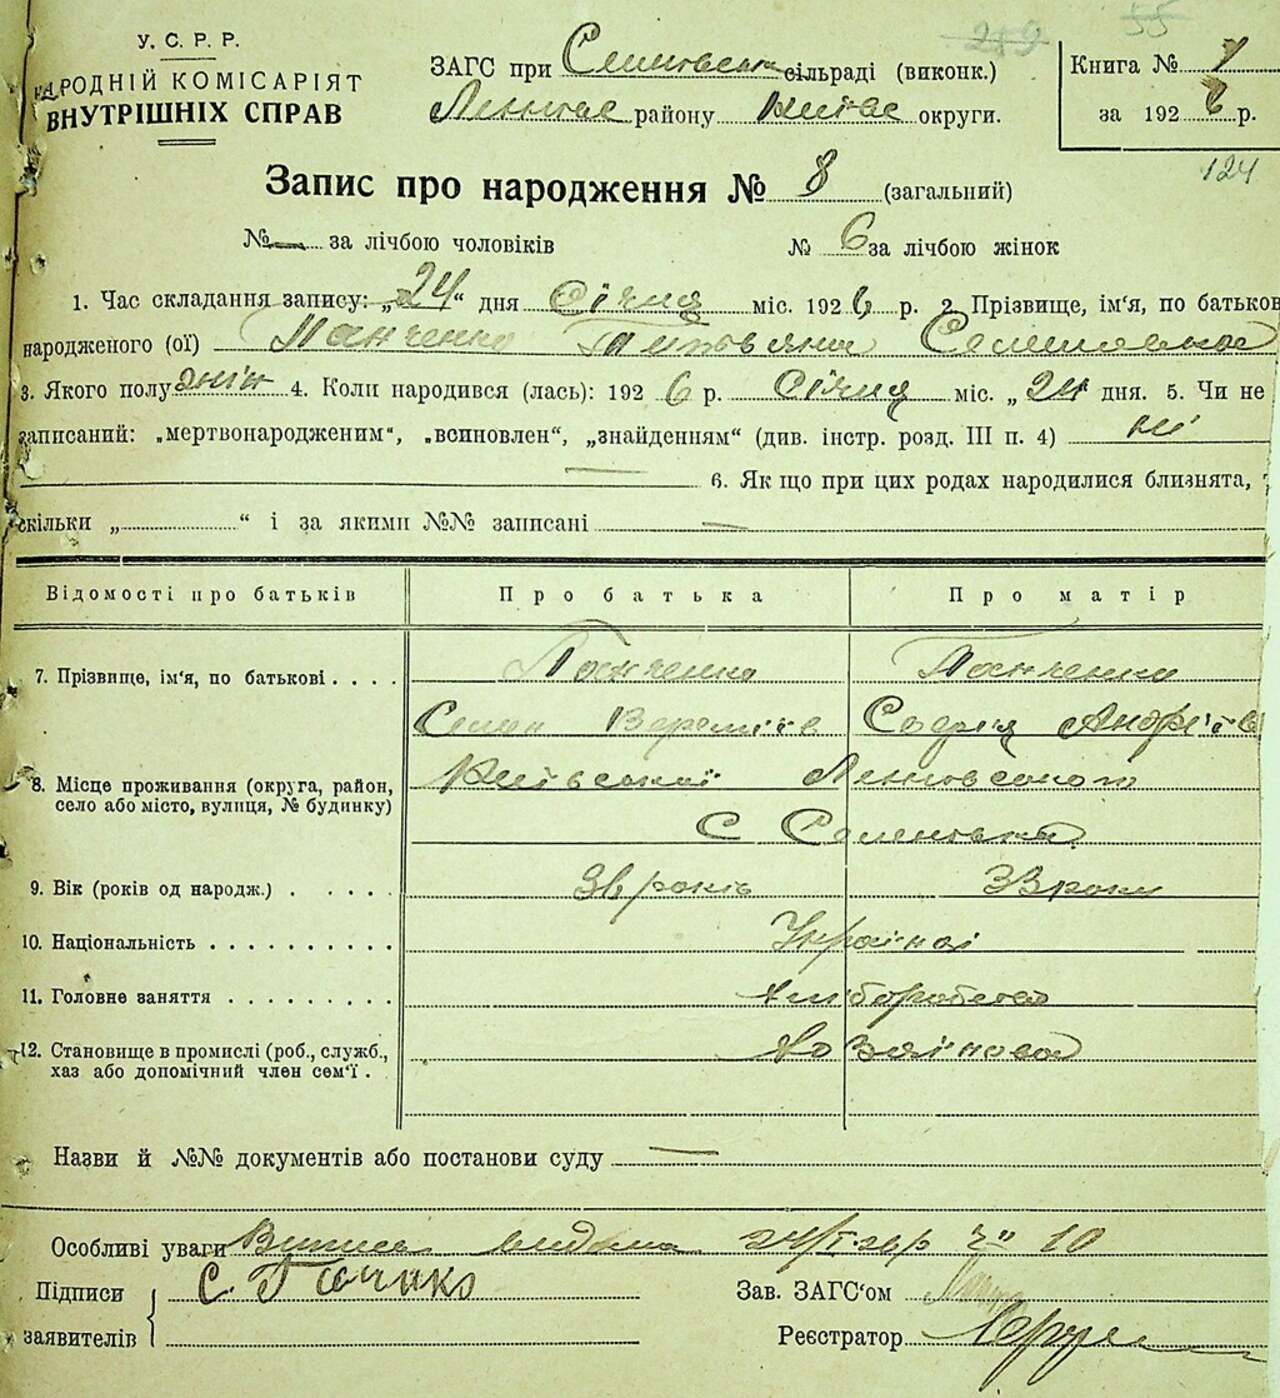 У. С. Р. Р.
НАРОДНІЙ КОМІСАРІЯТ
ВНУТРІШНІХ СПРАВ
ЗАГС при сільраді (виконк.)
району округи.
219 55
Книга № 1
за 1926 р.
124
Запис про народження № 8 (загальний)
№ — за лічбою чоловіків № 6 за лічбою жінок
1. Час складання запису: „24“ дня Січня міс. 1926 р. 2. Прізвище, ім'я, по батькові
народженого (ої) Панченко
3. Якого полу жін 4. Коли народився (лась): 1926 р. Січня міс. „24 дня. 5. Чи не
записаний: „мертвонародженим“, „всиновлен“, „знайденням“ (див. інстр. розд. III п. 4) ні
— 6. Як що при цих родах народилися близнята,
скільки „ “ і за якими №№ записані —
Відомості про батьків Про батька Про матір
7. Прізвище, ім'я, по батькові . . . . Панченко Панченко
Семен Софія Андріїв
8. Місце проживання (округа, район, Київської
село або місто, вулиця, № будинку) С
9. Вік (років од народж.) . . . . . 36 років 33 роки
10. Національність . . . . . . . . . . Українці
11. Головне заняття . . . . . . . . . хліборобство
12. Становище в промислі (роб., служб.,
хаз або допомічний член сем'ї .
Назви й №№ документів або постанови суду —
Особливі уваги Випись видана 24/I-26 р 10
Підписи С. Панчнко Зав. ЗАГС'ом
заявителів Реєстратор